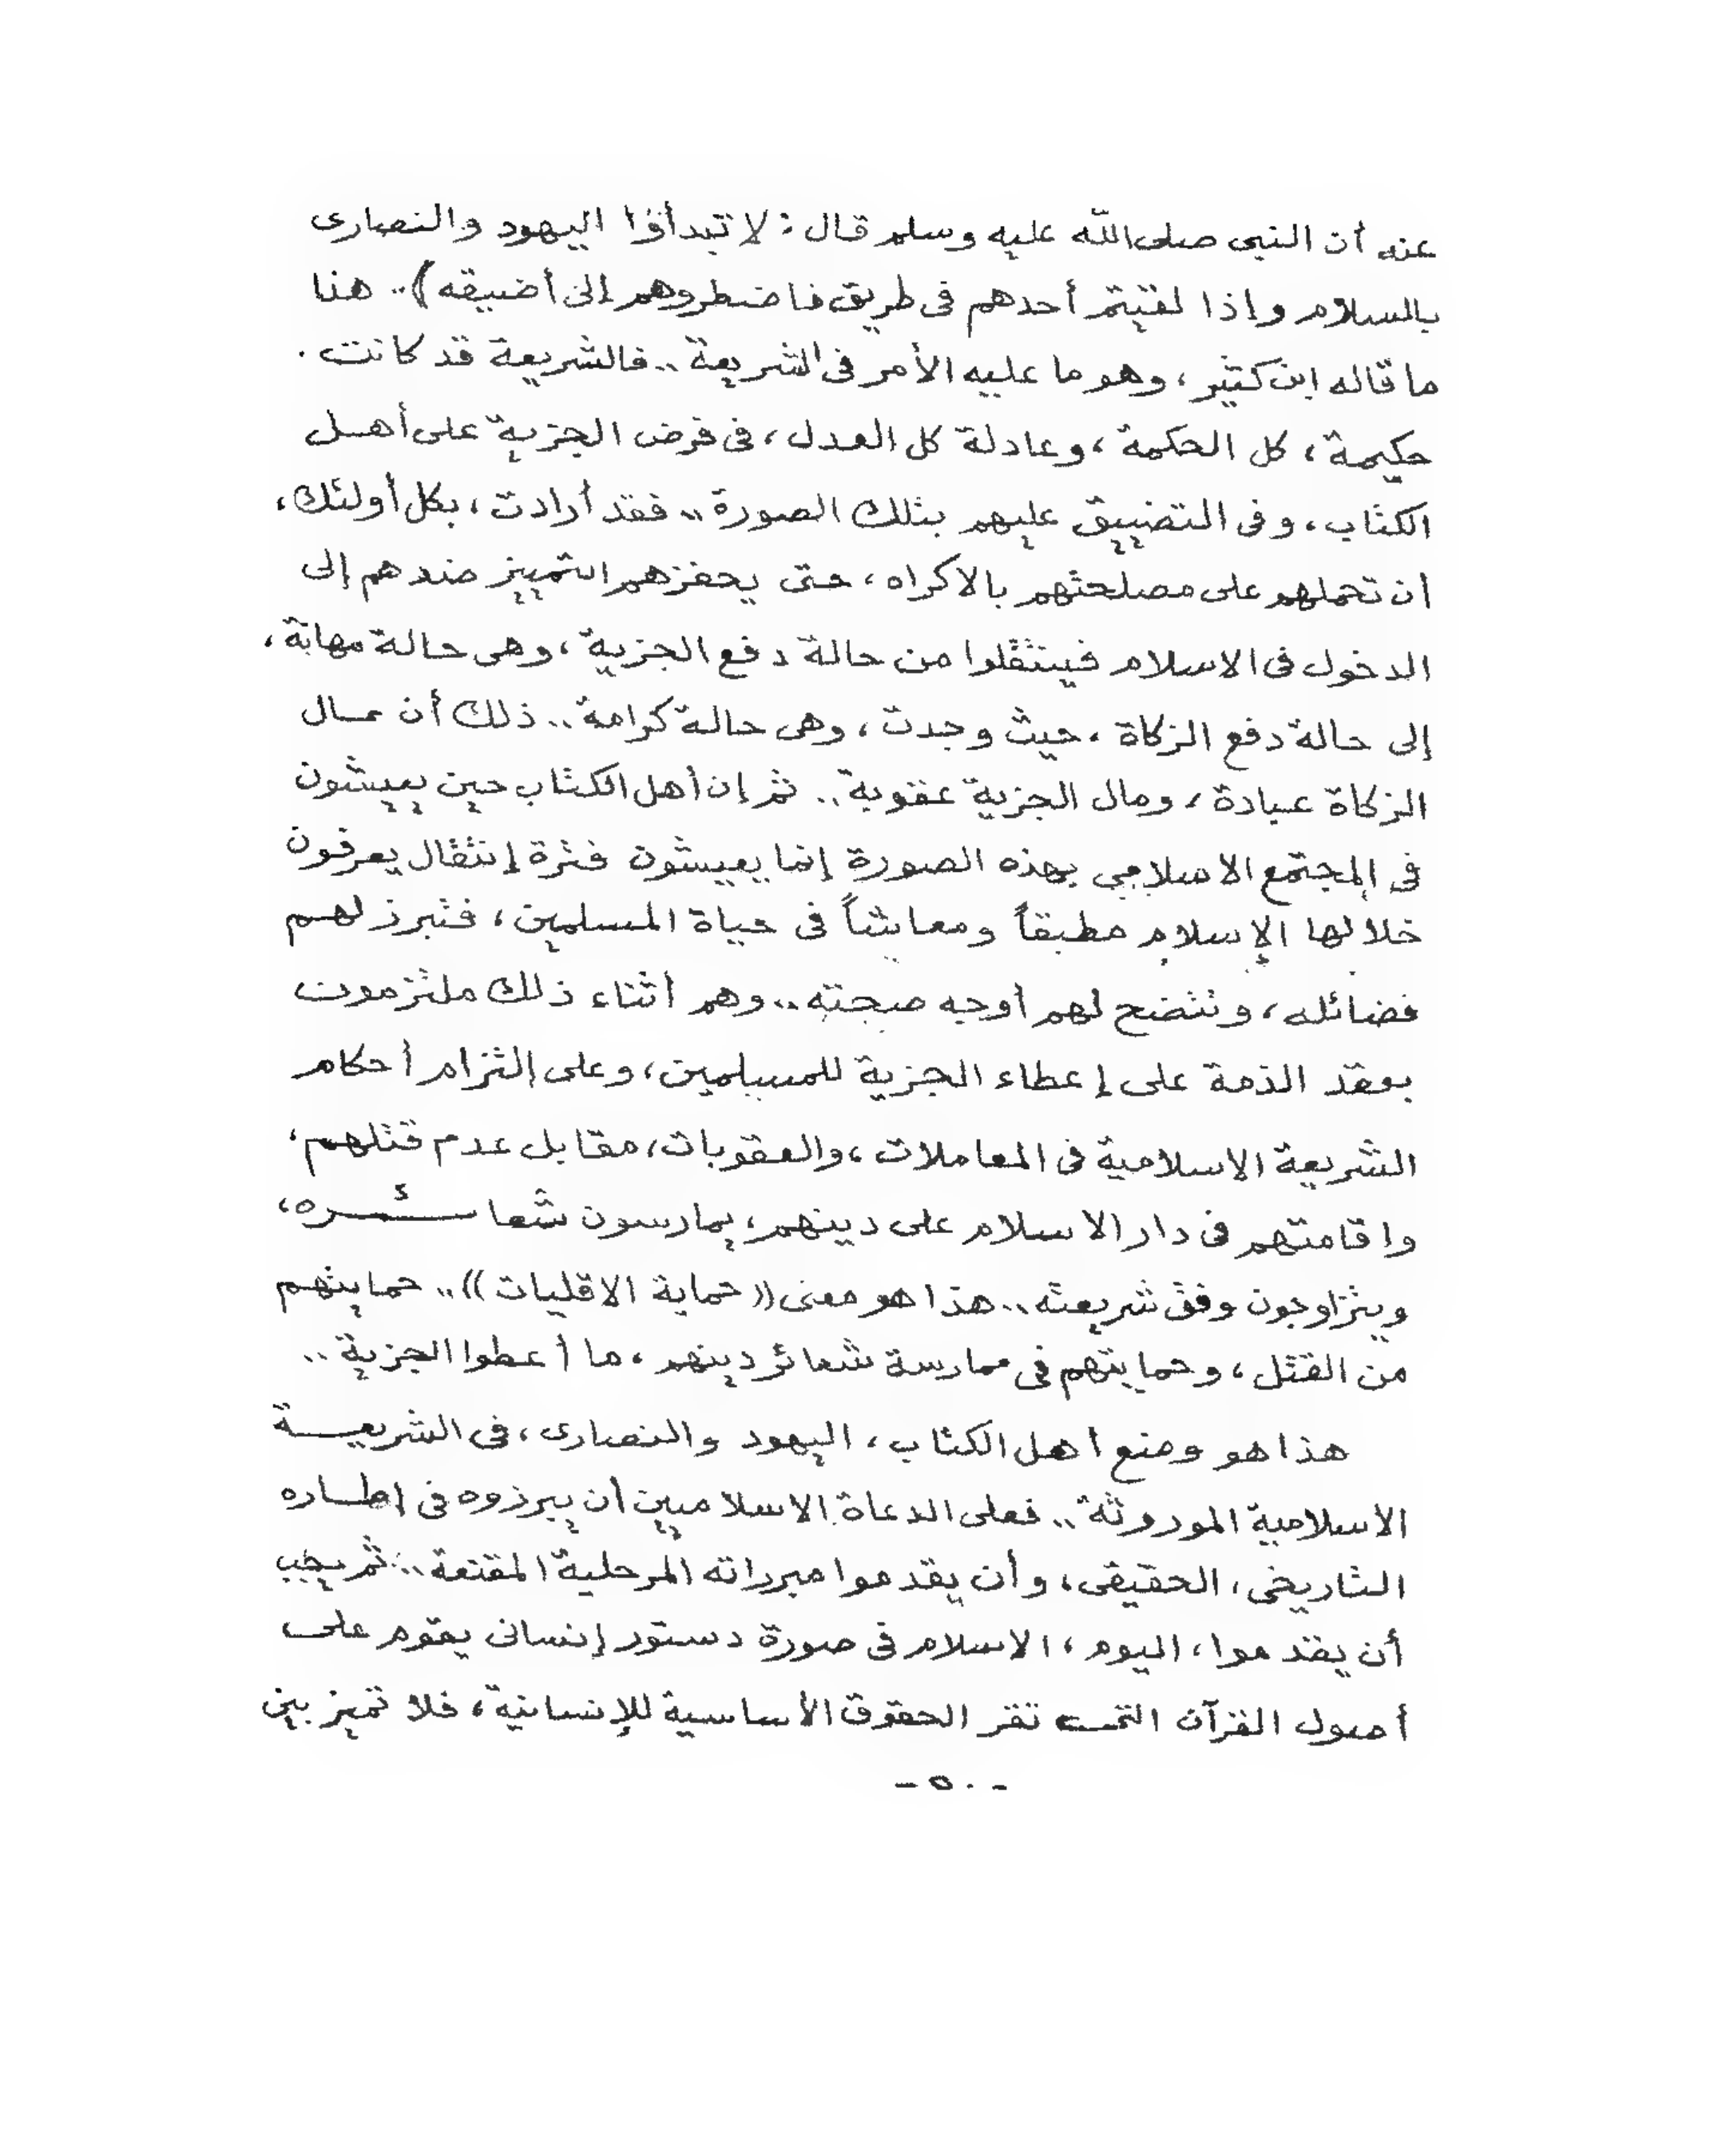 عنه أن النبى صلى الله عليه وسلم قال: لا تبدأوا اليهود والنصارى
بالسلام وإذا لقيتم أحدهم فى طريق فاضطروهم إلى أضيقه).. هذا
ما قاله ابن كثير، وهو ما عليه الأمر فى الشريعة.. فالشريعة قد كانت.
حكيمة، كل الحكمة، وعادلة كل العدل، فى فرض الجزية على أهل
الكتاب، وفى التضييق عليهم بتلك الصورة.. فقد أرادت، بكل أولئك،
ان تحملهم على مصلحتهم بالاكراه، حتى يحفزهم التمييز ضدهم إلى
الدخول فى الاسلام فينتقلوا من حالة دفع الجزية، وهى حالة مهانة،
إلى حالة دفع الزكاة، حيث وجدت، وهى حالة كرامة.. ذلك أن مال
الزكاة عبادة، ومال الجزية عقوبة.. ثم إن أهل الكتاب حين يعيشون
فى المجتمع الاسلامي بهذه الصورة إنما يعيشون فترة إنتقال يعرفون
خلالها الإسلام مطبقاً ومعاشاً فى حياة المسلمين، فتبرز لهم
فضائله، وتتضح لهم أوجه صحته.. وهم أثناء ذلك ملتزمون
بعقد الذمة على إعطاء الجزية للمسلمين، وعلى إلتزام أحكام
الشريعة الاسلامية فى المعاملات، والعقوبات، مقابل عدم قتلهم،
واقامتهم فى دار الاسلام على دينهم، يمارسون شعائره،
ويتزاوجون وفق شريعته.. هذا هو معنى ((حماية الاقليات)).. حمايتهم
من القتل، وحمايتهم فى ممارسة شعائر دينهم، ما أعطوا الجزية..
هذا هو وضع أهل الكتاب، اليهود والنصارى، فى الشريعة
الاسلامية الموروثة.. فعلى الدعاة الاسلاميين أن يبرزوه فى إطاره
التاريخى، الحقيقى، وأن يقدموا مبرراته المرحلية المقنعة.. ثم يجب
أن يقدموا، اليوم، الاسلام فى صورة دستور إنسانى يقوم على
أصول القرآن التى تقر الحقوق الأساسية للإنسانية، فلا تميز بين
- ٥٠ -